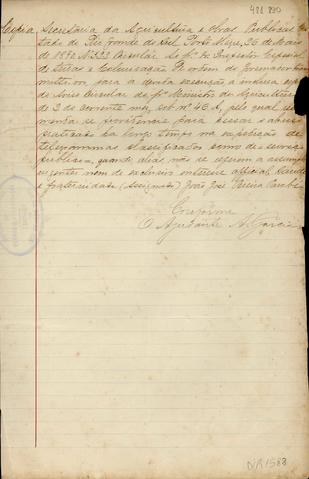 488 890
Copia Secretaria da Agricultura e Obras Publicas Es
tado do Rio Grande do Sul. Porto Alegre, 26 de Maio
de 1890 N. 533 Circular. Ao Sr. Dr. Inspector Especial
de Terras e Colonisação. De ordem do Governador
para a devida execução a inclusa copia
do Aviso Circular do Sr. Ministro da Agricultura
de 2 do corrente mez, sob nº 46 A, pelo qual
se providencie para cessar o abuso
praticado ha longo tempo na expedição de
telegrammas classificados como de serviço
publico, quando alias não se referem a assumptos
urgentes nem de exclusivo interesse official. Saude
e fraternidade (assignado) João José Pereira Parobé.
Conforme
O Ajudante A. Garcia
NR 1588